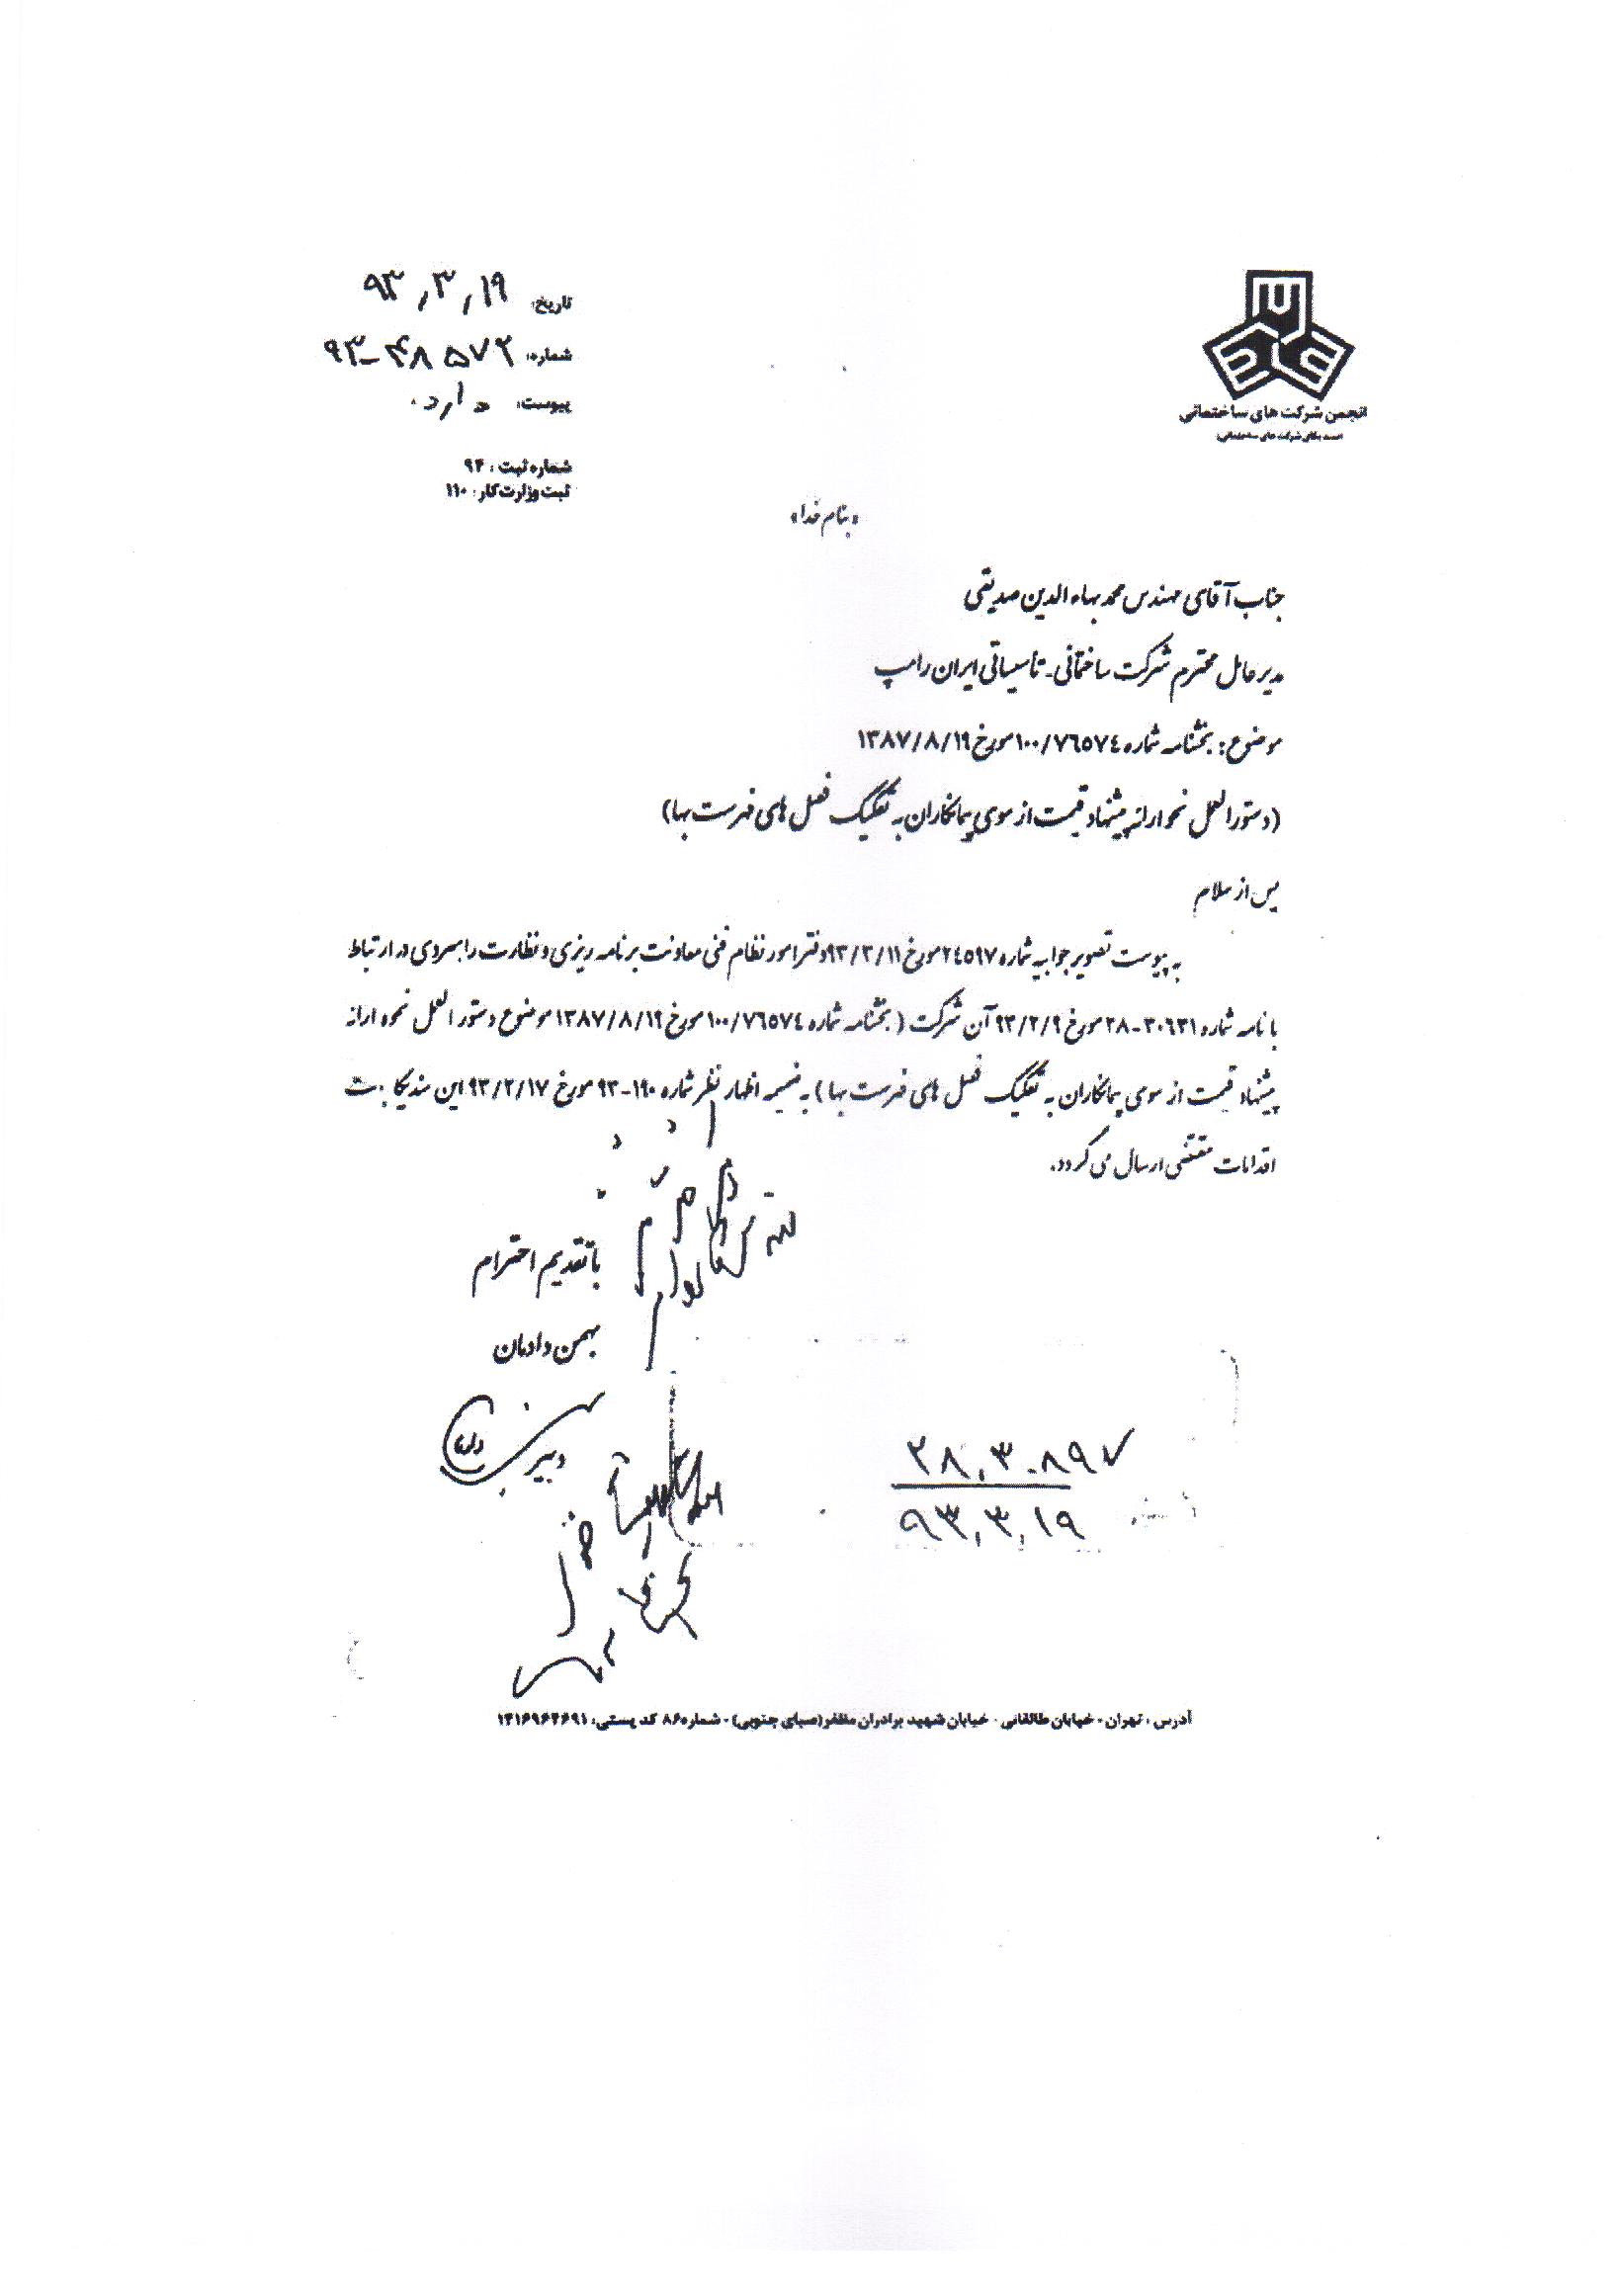 تاریخ: ۹۳٫۳٫۱۹
شماره: ۹۳-۴۸۵۷۲
پیوست: دارد.
شماره ثبت: ۹۴
ثبت وزارت کار: ۱۱۰
انجمن شرکت های ساختمانی
«بنام خدا»
جناب آقای مهندس محمد بهاء الدین صدیقی
مدیرعامل محترم شرکت ساختمانی - تأسیساتی ایران رامپ
موضوع: بخشنامه شماره ۱۰۰/۷۶۵۷۴ مورخ ۱۳۸۷/۸/۱۹
(دستورالعمل نحوه ارائه پیشنهاد قیمت از سوی پیمانکاران به تفکیک فصل های فهرست بها)
پس از سلام
به پیوست تصویر جوابیه شماره ۲۴۵۹۷ مورخ ۹۳/۳/۱۱ دفتر امور نظام فنی معاونت برنامه ریزی و نظارت راهبردی در ارتباط
با نامه شماره ۳۰۶۳۱-۲۸ مورخ ۹۳/۲/۹ آن شرکت (بخشنامه شماره ۱۰۰/۷۶۵۷۴ مورخ ۱۳۸۷/۸/۱۹ موضوع دستورالعمل نحوه ارائه
پیشنهاد قیمت از سوی پیمانکاران به تفکیک فصل های فهرست بها) به ضمیمه اظهار نظر شماره ۱۹۰-۹۳ مورخ ۹۳/۲/۱۷ این سندیکا
اقدامات مقتضی ارسال می گردد.
با تقدیم احترام
بهمن دادمان
دبیر
۲۸٫۳۰۸۹۷
۹۳٫۳٫۱۹
آدرس: تهران - خیابان طالقانی - خیابان شهید برادران مظفر (صبای جنوبی) - شماره ۸۶ کد پستی: ۱۴۱۶۹۶۴۶۹۱